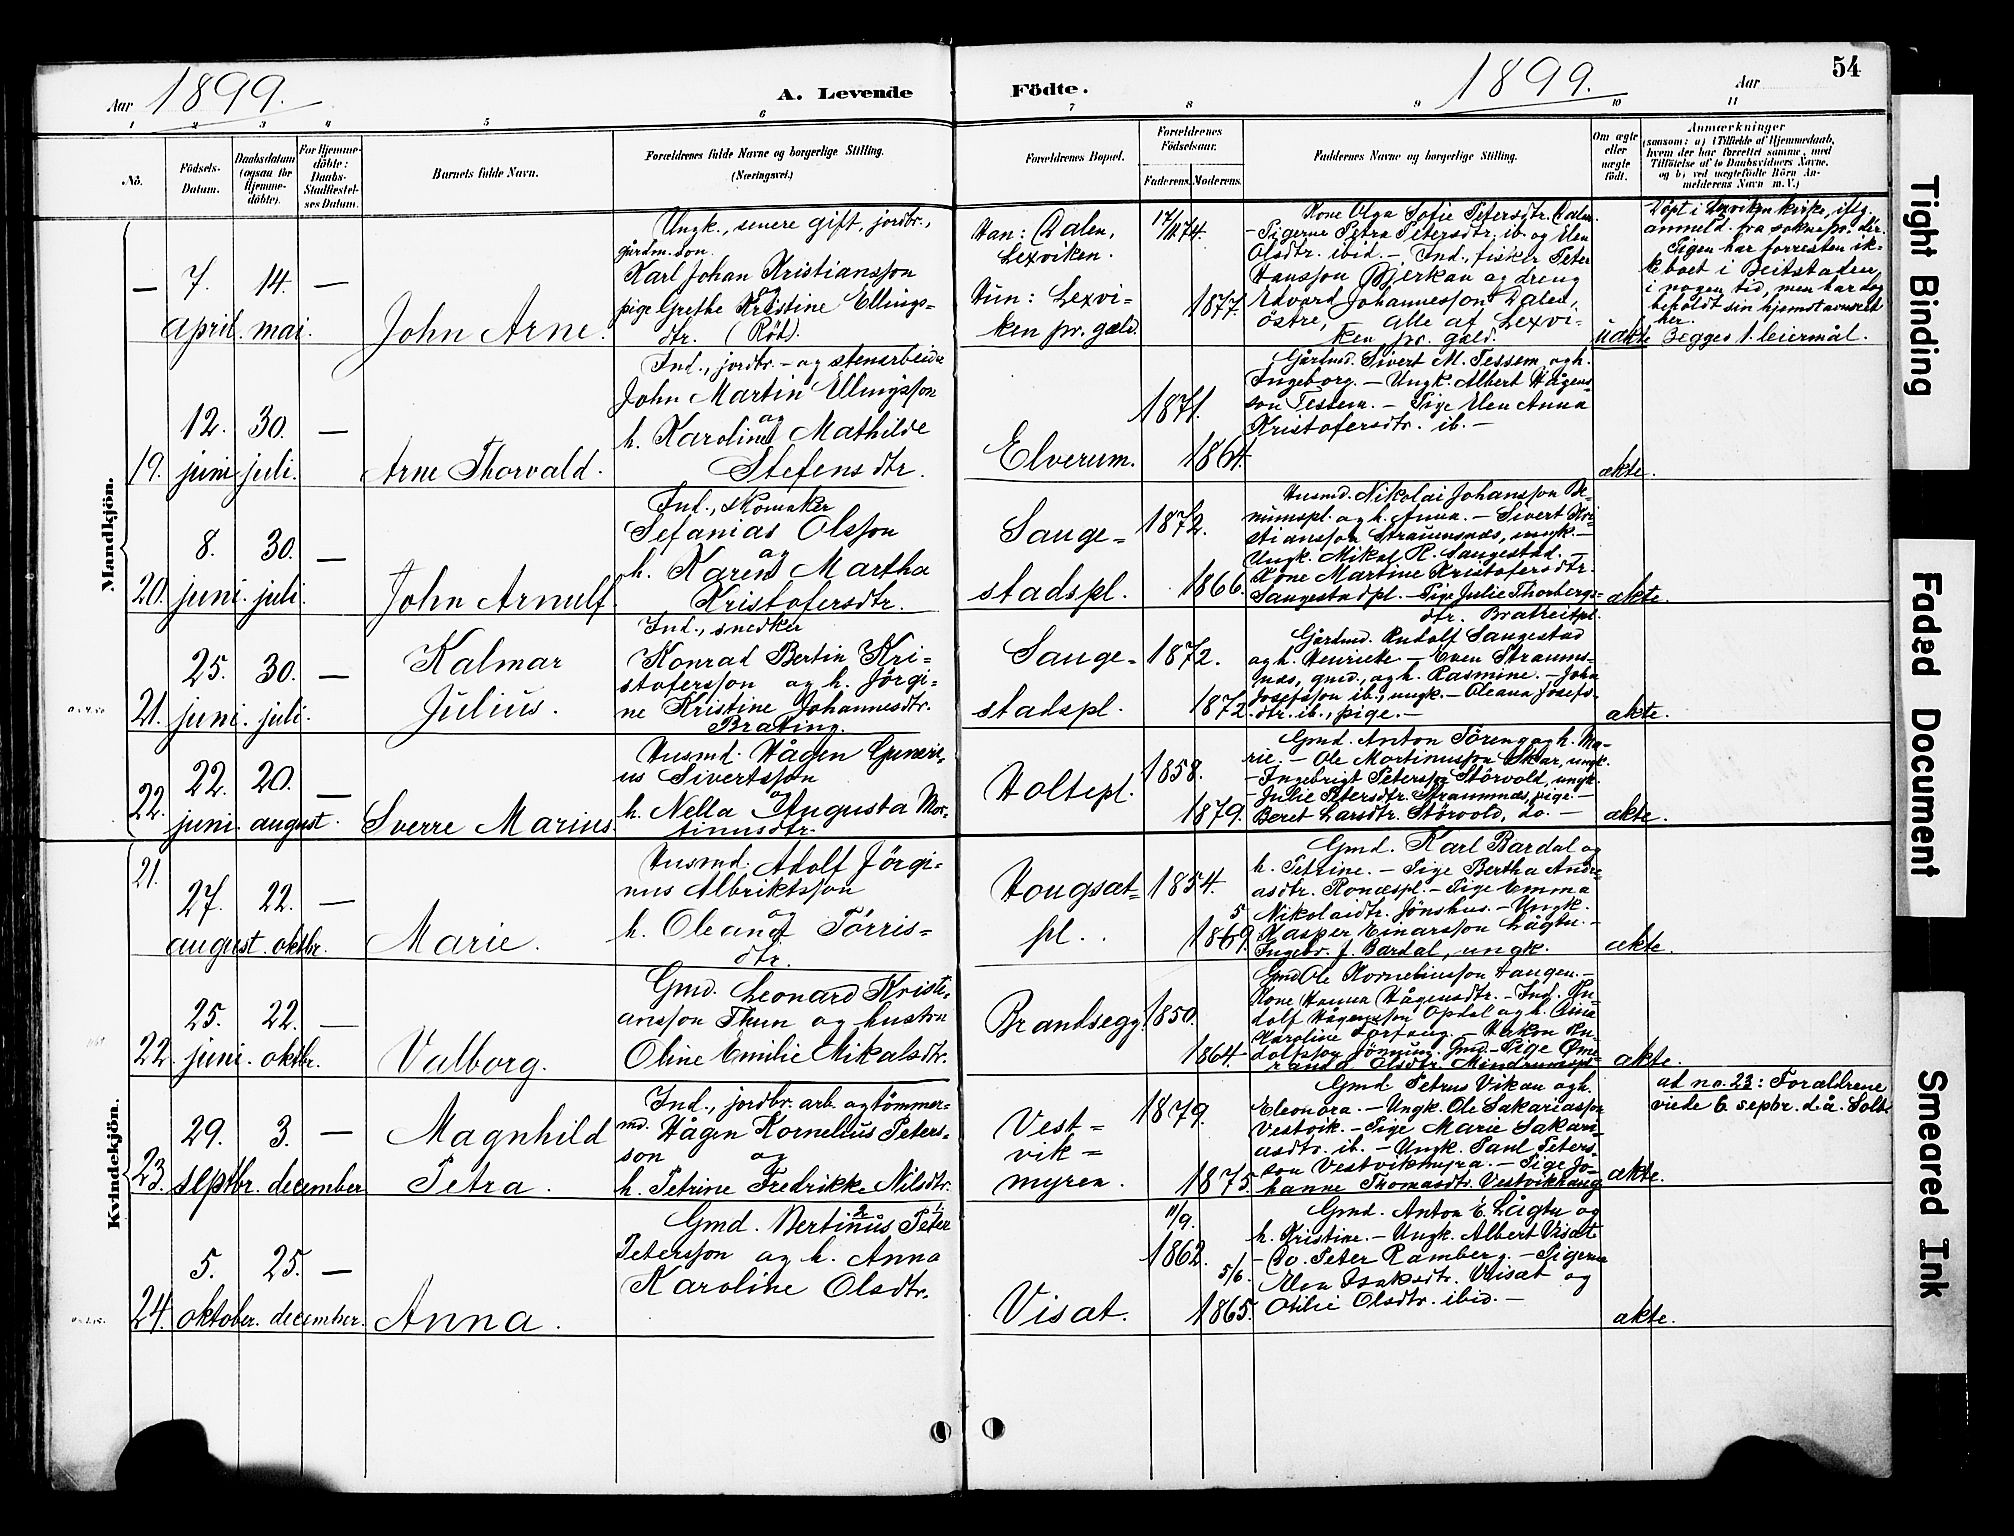 Aar 1899. A. Levende
Födte. 1899. Aar 54
1 2 3 4 5 6
7 8 9 10 11
No.
Födsels-
Datum.
Daabsdatum
(ogsaa for
Hjemme-
döbte).
For Hjemme-
döbte:
Daabs-
Stadfæstel-
ses Datum.
Barnets fulde Navn.
Forældrenes fulde Navne og borgerlige Stilling.
(Næringsvei.)
Forældrenes Bopæl.
Forældrenes
Födselsaar.
Faderens. Moderens.
Faddernes Navne og borgerlige Stilling.
Om ægte
eller
uægte
födt.
Anmærkninger
(saasom: a) i Tilfælde af Hjemmedaab,
hvem der har forrettet samme, med
Tilföielse af to Daabsvidners Navne,
og b) ved uægtefödte Börn An-
melderens Navn m. V.)
Mandkjön.
— 7. 14. —
april. mai.
John Arne.
Ungk., senere gift, jordbr.,
gårdm. son.
Karl Johan Kristiansson
og
pige Grethe Kristine Ellings-
dtr. (Röt).
Han: Dalen,
Lexviken.
Hun: Lexvi-
ken pr. gæld.
17/11 1874.
1877.
Kone Olga Sofie Petersdtr. Dalen.
- Pigerne Petra Petersdtr. ib. og Elen
Olsdtr. ibid. - Ind., fisker Peter
Hansson Bjerkan og dreng
Edvard Johannesson Dalen,
östre, alle af Lexvi-
ken pr. gæld.
uækte
Döpt i Lexviken kirke, iflg.
anmeld. fra sokne pr. der.
Pigen har forresten ik-
ke boet i Beitstaden
i nogen tid, men har dog
beholdt sin hjemstavnsret
her.
Begges 1. leiermål.
19. 12. 30. —
juni juli.
Arne Thorvald.
Ind., jordbr.- og stenarbeider
John Martin Ellingsson
og
h. Karoline Mathilde
Stefensdtr.
Elverum.
1871.
1864.
Gårdmd. Sivert M. Tessem og h.
Ingeborg. - Ungk. Albert Hågens-
son Tessem. - Pige Elen Anna
Kristofersdtr. ib. -
ækte.
20. 8. 30. —
juni. juli.
John Arnulf.
Ind., skomaker
Sefanias Olsson
og
h. Karen Martha
Kristofersdtr.
Sauge-
stadspl.
1872.
1866.
Husmd. Nikolai Johansson Be-
numspl. og h. Anna. - Sivert Kri-
stiansson Straumsnæs, ungk. -
Ungk. Mikal R. Saugestad. -
Kone Martine Kristofersdtr.
Saugestadpl. - Pige Julie Thorbergs-
dtr. Bratreitpl.
ækte.
21. 25. 30. —
juni. juli.
Kalmar
Julius.
Ind., snedker
Konrad Bertin Kri-
stofersson og h. Jörgi-
ne Kristine Johannesdtr.
Brating.
Sauge-
stadspl.
1872.
1872.
Gårdmd. Rudolf Saugestad
og h. Henriette - Even Straums-
næs, gmd., og h. Rasmine. - John
Josefsson ib., ungk. - Oleana Josefs-
dtr. ib., pige. -
ækte.
22. 22. 20. —
juni. august.
Sverre Marius.
Husmd. Hågen Generi-
us Sivertsson
og
h. Nella Augusta Mar-
tinusdtr.
Holtepl.
1858.
1879.
Gmd. Anton Föreng og h. Ma-
rie. - Ole Martinusson Skar, ungk.
- Ingebrigt Petersson Störvold, ungk.
- Julie Petersdtr. Straumnæs, pige. -
Beret Larsdtr. Störvold, do. -
ækte.
Kvindekjön.
21. 27. 22. —
august. oktbr.
Marie.
Husmd. Adolf Jörgi-
nus Albriktsson
og
h. Oleana Törris-
dtr.
Hougsat-
pl.
1854.
5 1869.
Gmd. Karl Bardal og
h. Petrine. - Pige Bertha Andre-
asdtr. Ronæspl. - Pige Emma
Nikolaidtr. Jönshus. - Ungk.
Kasper Einarsson Lågtu. -
Ingebr. J. Bardal, ungk.
ækte.
22. 25. 22. —
juni. oktbr.
Valborg.
Gmd. Leonard Kristi-
ansson Tkun og hustru
Oline Emilie Mikalsdtr.
Brandsegg.
1850.
1864.
Gmd Ole Kornelinsson Haugen. -
Kone Hanna Hågensdtr. - Ind.
dolf Hågensson Opdal og h.
Karoline Forfang. - Håkon Ru-
dolfsson Jönnum. Gmd - Pige
Olsdtr. Mindrumspl.
ækte.
23. 29. 3. —
septbr. december
Magnhild
Petra.
Ind., jordbr. arb. og tömmer-
md. Hågen Kornelius Peters-
son og
h. Petrine Fredrikke Nilsdtr.
Vest-
vik-
myren.
1879.
1875.
Gmd. Petrus Vikan og h.
Eleonora. - Ungk. Ole Sakariasson
Vestvik. - Pige Marie Sakari-
asdtr. ib. - Ungk. Paul Peters-
son Vestvikmyra. - Pige Jo-
hanne Thomasdtr. Vestvikhaug
ækte.
at no. 23: Forældrene
viede 6 sepbr. d. å.
24. 5. 25. —
oktober. december.
Anna.
Gmd. Bertinus Peter
2 1
Petersson og h. Anna
Karoline Olsdtr.
Visat.
11/9. 1862.
5/6. 1865.
Gmd. Anton E. Lågtu og
h. Kristine. - Ungk. Albert Visat
- Do. Peter Ramberg. - Pigerne
Elen Isaksdtr. Visat og
Otilie Olsdtr. ibid. -
ækte.
Tight Binding
Faded Document
Smeared Ink